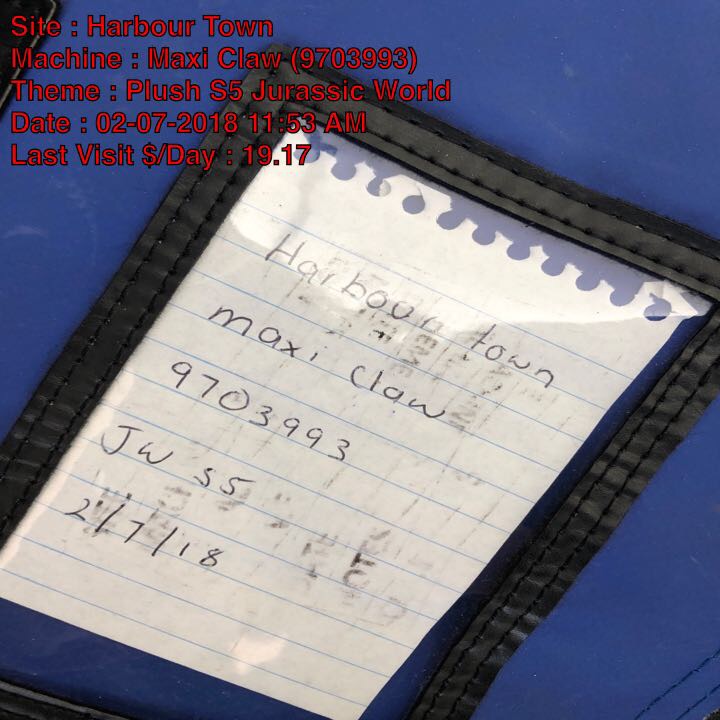 Site : Harbour Town
Machine : Maxi Claw (9703993)
Theme : Plush S5 Jurassic World
Date : 02-07-2018 11:53 AM
Last Visit $/Day : 19.17
Harbour town
maxi claw
9703993
JW S5
2/7/18